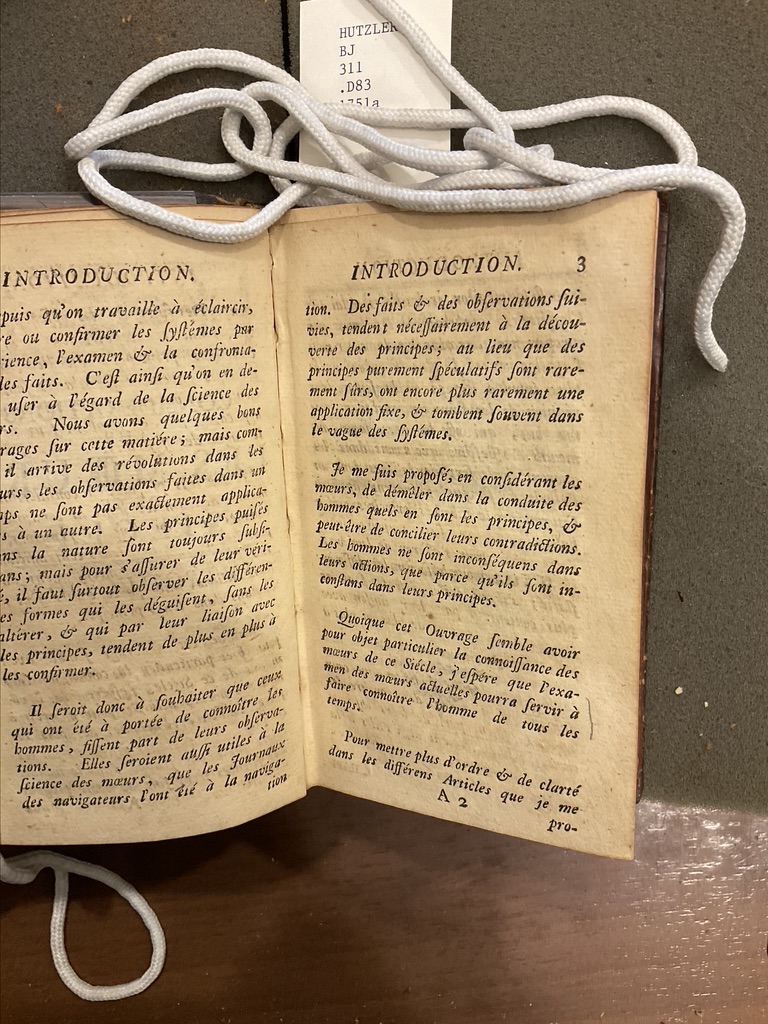 HUTZLER
BJ
311
.D83
1751a
INTRODUCTION.
puis qu'on travaille à éclaircir,
re ou confirmer les ſyſtémes par
rience, l'examen & la confronta-
les faits. C'eſt ainſi qu'on en de-
uſer à l'égard de la ſcience des
rs. Nous avons quelques bons
rages ſur cette matiére; mais com-
il arrive des révolutions dans les
urs, les obſervations faites dans un
ps ne ſont pas exactement applica-
s à un autre. Les principes puiſés
ns la nature ſont toujours ſubſi-
ans; mais pour s'aſſurer de leur véri-
é, il faut ſurtout obſerver les différen-
es formes qui les déguiſent, ſans les
altérer, & qui par leur liaiſon avec
les principes, tendent de plus en plus à
les confirmer.
Il ſeroit donc à ſouhaiter que ceux
qui ont été à portée de connoître les
hommes, fiſſent part de leurs obſerva-
tions. Elles ſeroient auſſi utiles à la
ſcience des mœurs, que les Journaux
des navigateurs l'ont été à la naviga-
tion
INTRODUCTION. 3
tion. Des faits & des obſervations ſui-
vies, tendent néceſſairement à la décou-
verte des principes; au lieu que des
principes purement ſpéculatifs ſont rare-
ment ſûrs, ont encore plus rarement une
application fixe, & tombent ſouvent dans
le vague des ſyſtémes.
Je me ſuis propoſé, en conſidérant les
mœurs, de démêler dans la conduite des
hommes quels en ſont les principes, &
peut-être de concilier leurs contradictions.
Les hommes ne ſont inconſéquens dans
leurs actions, que parce qu'ils ſont in-
conſtans dans leurs principes.
Quoique cet Ouvrage ſemble avoir
pour objet particulier la connoiſſance des
mœurs de ce Siécle, j'eſpére que l'exa-
men des mœurs actuelles pourra ſervir à
faire connoître l'homme de tous les
temps.
Pour mettre plus d'ordre & de clarté
dans les différens Articles que je me
A 2
pro-